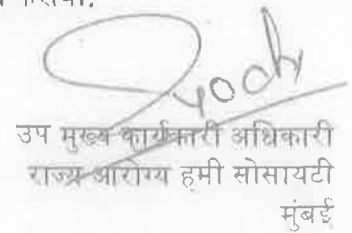 उप मुख्य कार्यकारी अधिकारी
राज्य आरोग्य हमी सोसायटी
मुंबई